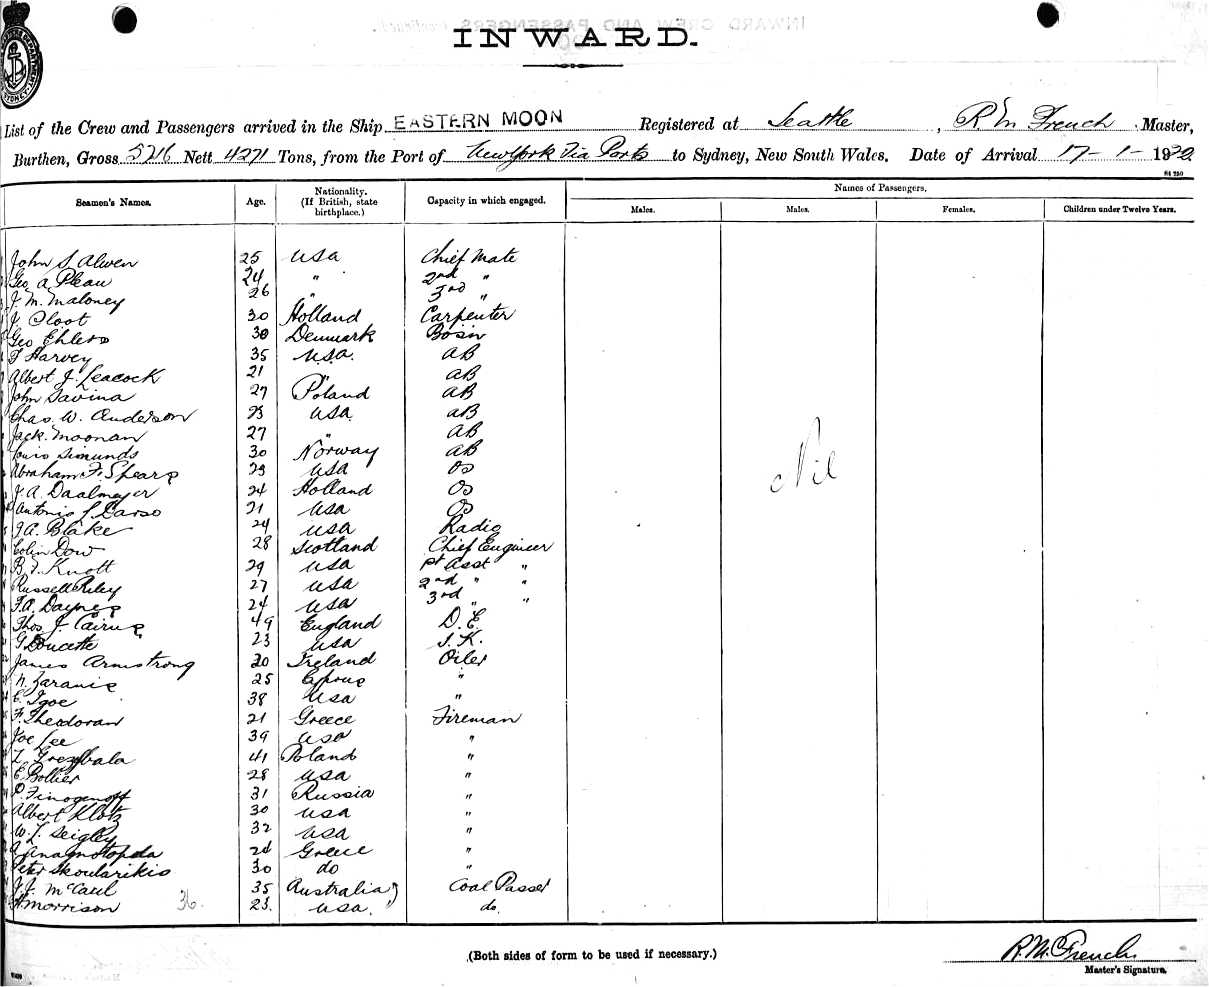 INWARD.
List of the Crew and Passengers arrived in the Ship EASTERN MOON Registered at Seattle, R M French Master,
Burthen, Gross 5216 Nett 4271 Tons, from the Port of New York Via Ports to Sydney, New South Wales. Date of Arrival 17-1-1920
St 250
Seamen's Names. Age. Nationality. (If British, state birthplace.) Capacity in which engaged. Names of Passengers.
Males. Males. Females. Children under Twelve Years.
John S. Alwen 25 USA Chief Mate
Geo A Pleau 24 " 2nd "
J. M. Maloney 26 " 3rd "
J Cloot 30 Holland Carpenter
Geo Ehlers 30 Denmark Bosin
F Harvey 35 USA. AB
Albert J. Leacock 21 " AB
John Savina 27 Poland AB
Chas. W. Anderson 23 USA. AB
Jack. Moonan 27 " AB
Louis Simunds 30 Norway AB
Abraham F. Spears 23 USA OS
J. A. Daalmeyer 24 Holland OS
Antonio J. Darso 21 USA OS
J A. Blake 24 USA Radio
Colin Dow 28 Scotland Chief Engineer
B. F. Knott 29 USA 1st Asst "
Russell Riley 27 USA 2nd " "
F. A. Daynes 24 USA 3rd " "
Thos J. Cairns 49 England D. E.
G Doucette 23 USA S. K.
James Armstrong 20 Ireland Oiler
N. Zaranis 25 Cyprus "
E. Igoe 38 USA "
F. Theodoran 21 Greece Fireman
Joe Lee 39 USA "
41 Poland "
E Bollier 28 USA "
P. Finogenoff 31 Russia "
Albert Klotz 30 USA "
W. J. Seigley 32 USA "
24 Greece "
Peter Skoularikis 30 do "
J. J. McCaul 35 Australia Coal Passer
H. Morrison 36. 23. USA. do.
Nil
(Both sides of form to be used if necessary.)
R. M. French
Master's Signature.